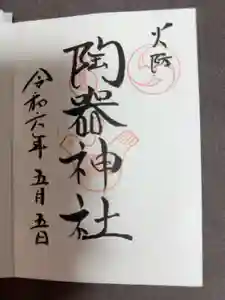 火防
陶器神社
令和六年五月五日